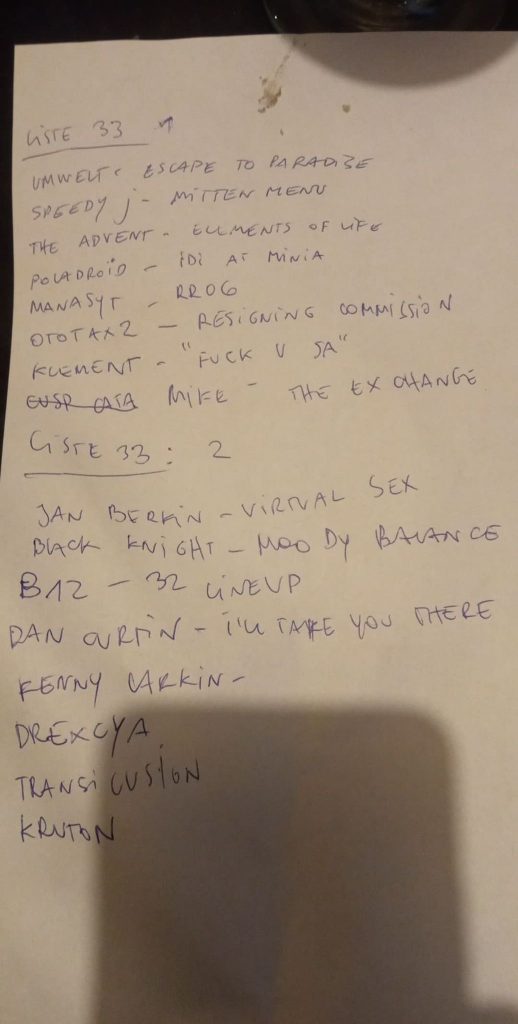 LISTE 33 1
UMWELT - ESCAPE TO PARADISE
SPEEDY j - MITTEN MENU
THE ADVENT - ELLMENTS OF LIFE
POLADROID - iDi AT MINIA
MANASYT - RR06
OTOTAX2 - RESIGNING COMMISSION
KLEMENT - "FUCK U SA"
MIKE - THE EX CHANGE
LISTE 33 : 2
JAN BERKIN - VIRTUAL SEX
BLACK KNIGHT - MOODY BALANCE
B12 - 32 LINEUP
DAN CURTIN - i'LL TAKE YOU THERE
KENNY LARKIN -
DREXCYA
TRANSi CUSION
KRUTON